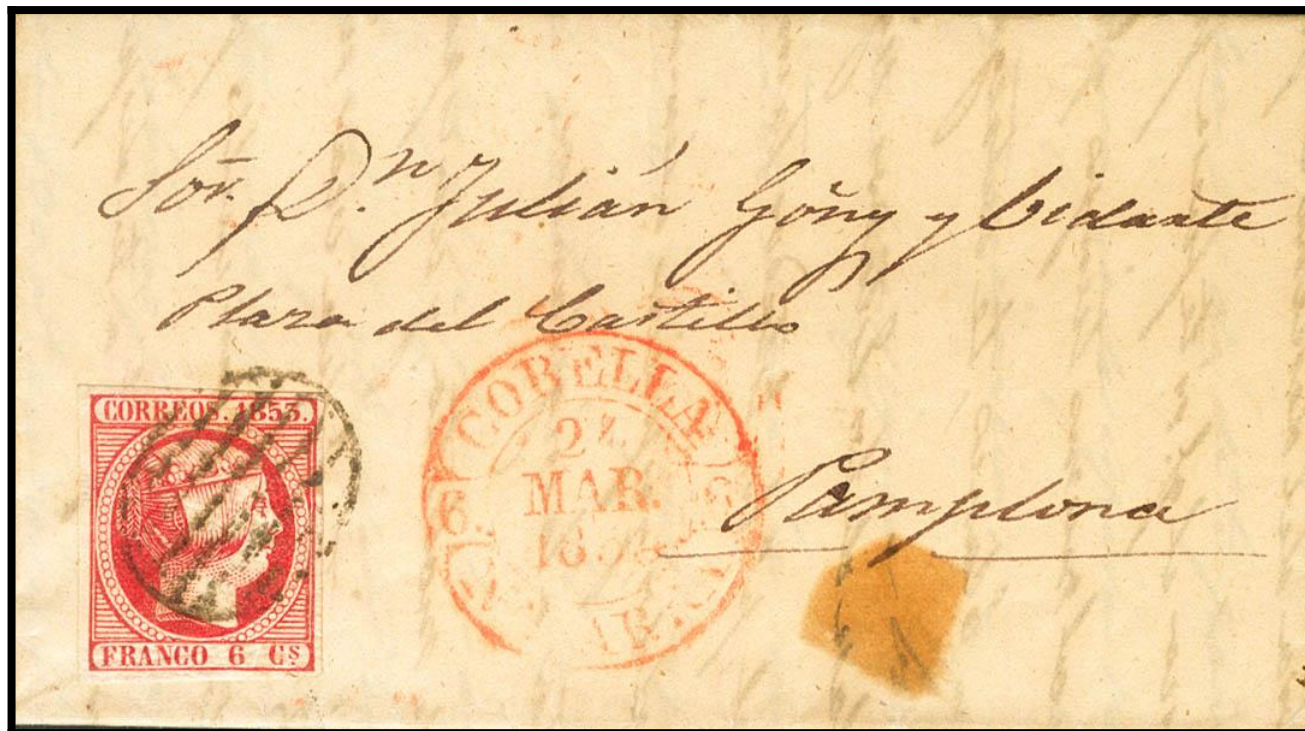 Sor. Dn. Julián Goñy y Vidarte
Plaza del Castillo
Pamplona
CORREOS. 1853.
FRANCO 6 CS
CORELLA
MAR.